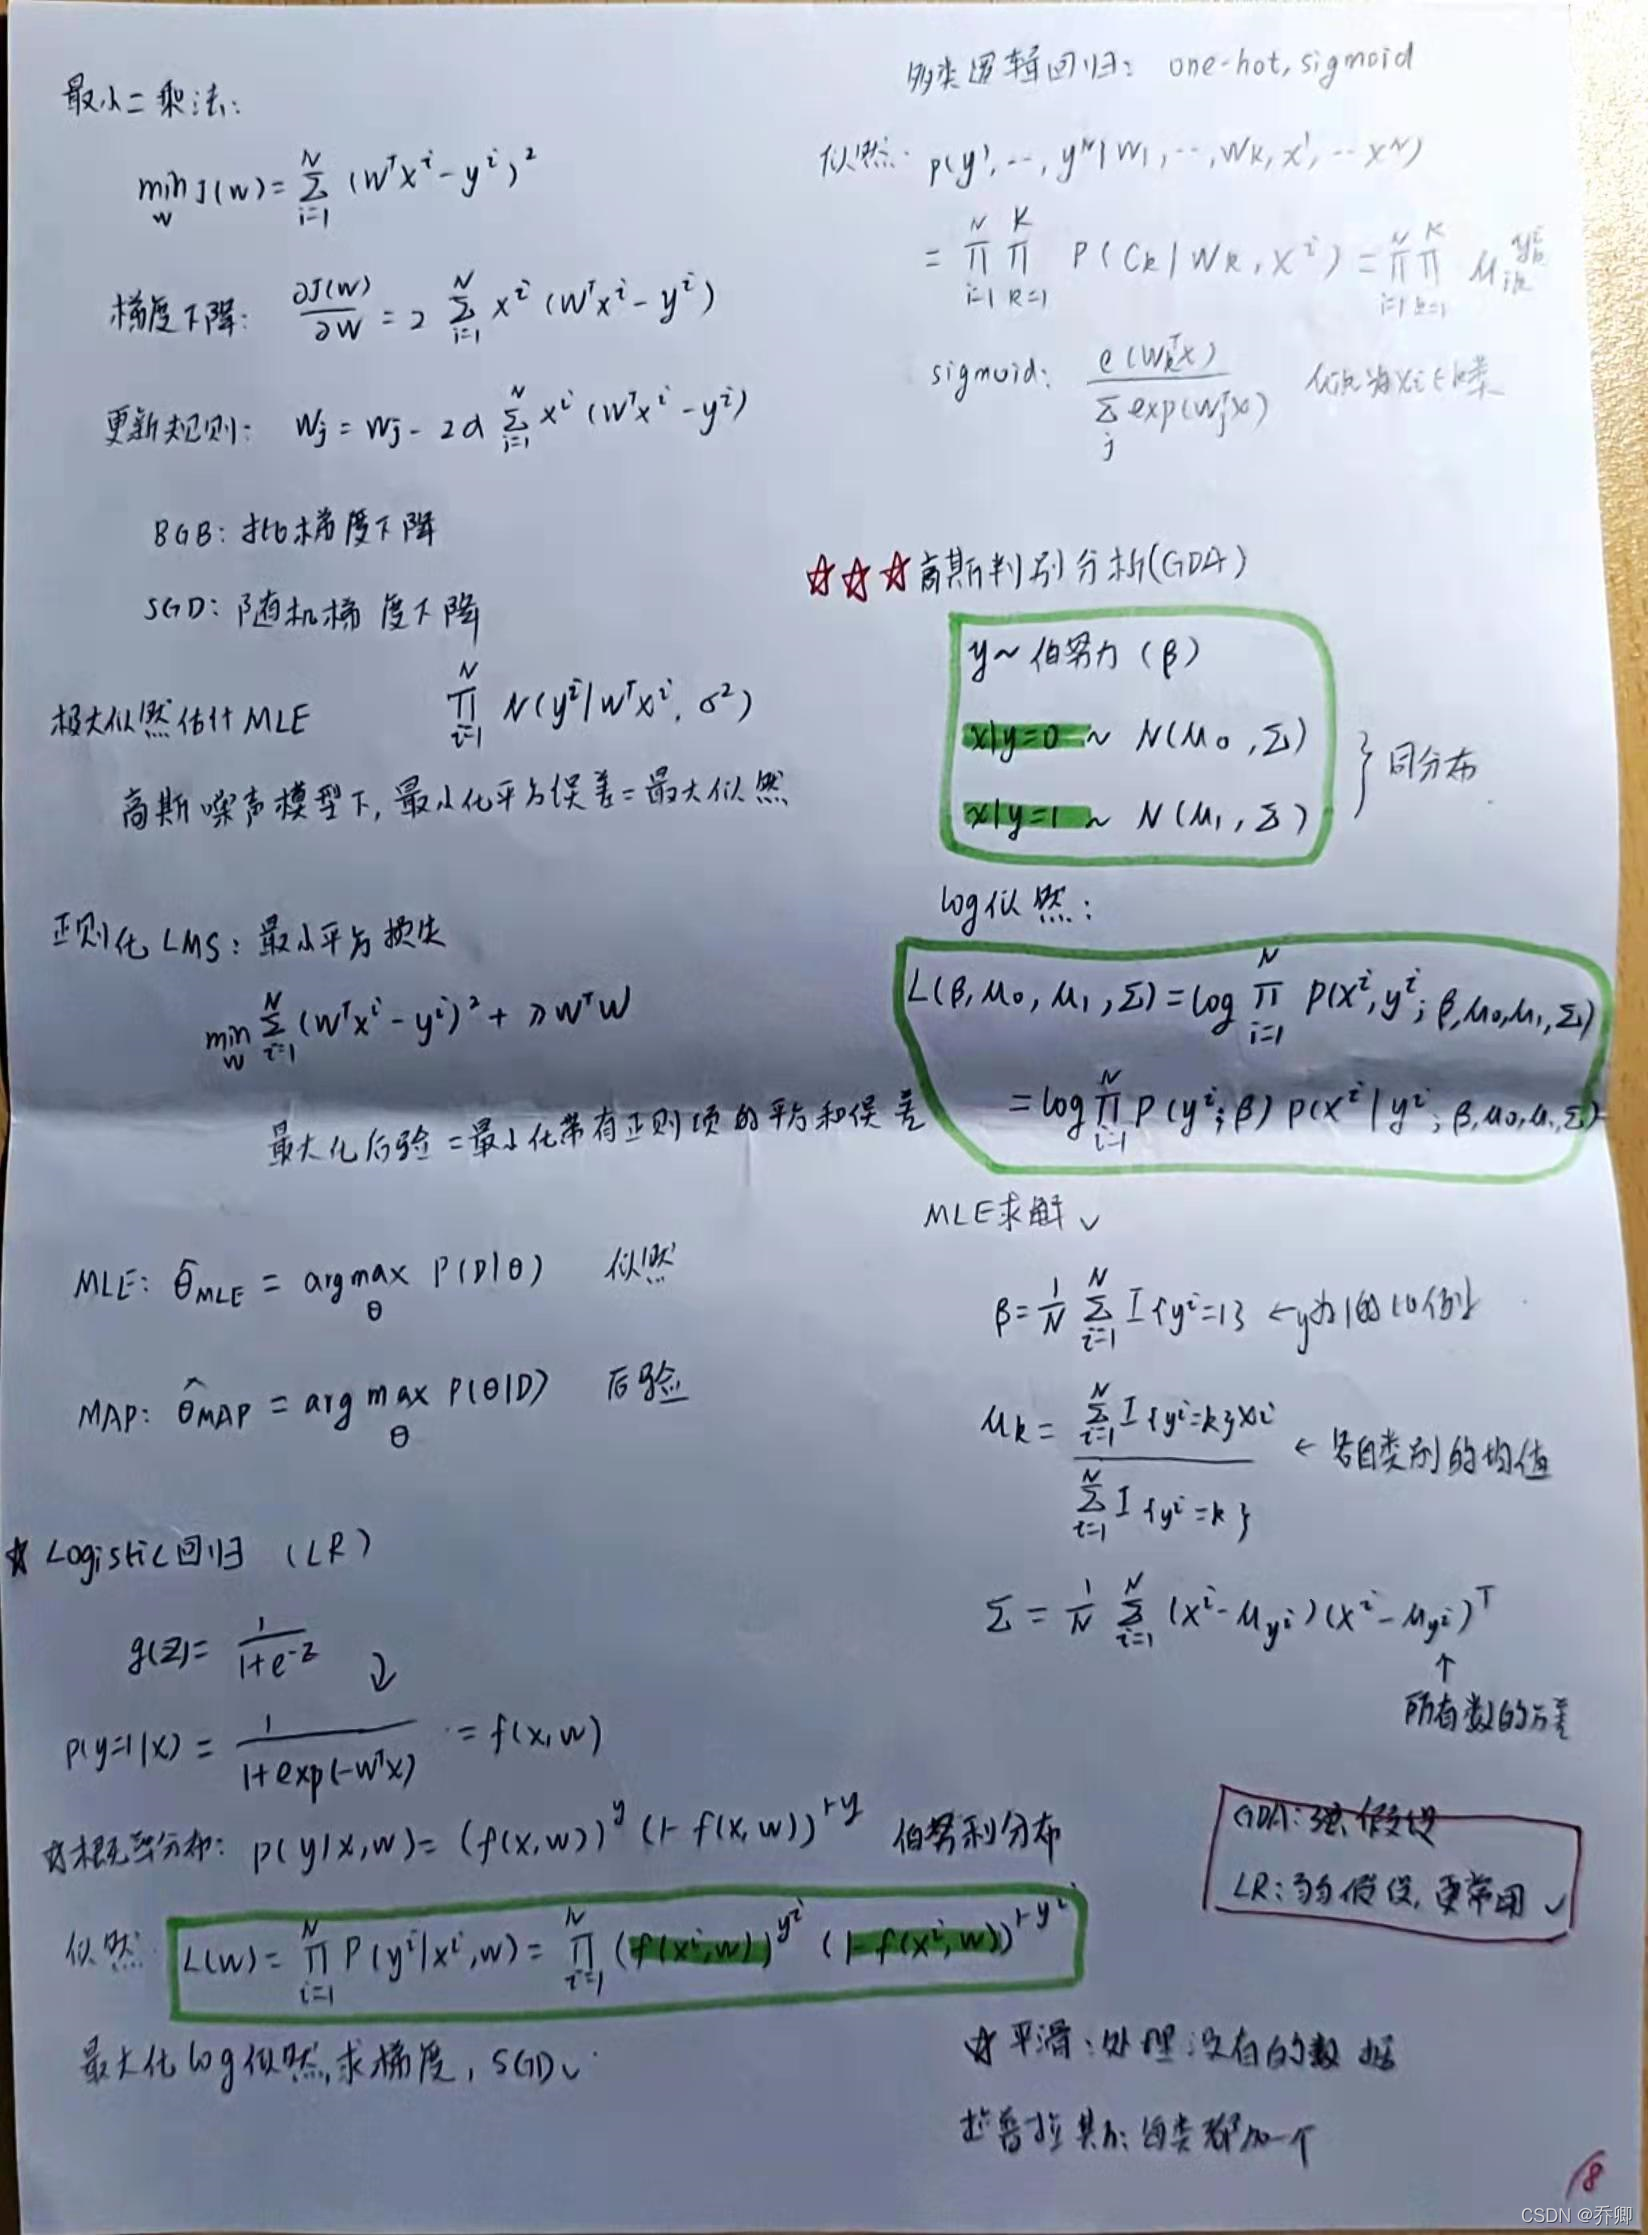 最小二乘法:
min_w J(w) = Σ_{i=1}^{N} (w^T x^i - y^i)^2
梯度下降: ∂J(w)/∂w = 2 Σ_{i=1}^{N} x^i (w^T x^i - y^i)
更新规则: w_j = w_j - 2α Σ_{i=1}^{N} x^i (w^T x^i - y^i)
BGB: 批梯度下降
SGD: 随机梯度下降
极大似然估计 MLE Π_{i=1}^{N} N(y^i | w^T x^i, σ^2)
高斯噪声模型下, 最小化平方误差=最大似然
正则化 LMS: 最小平方损失
min_w Σ_{i=1}^{N} (w^T x^i - y^i)^2 + λ w^T w
最大化后验=最小化带有正则项的平方和误差
MLE: θ̂_MLE = argmax_θ P(D|θ) 似然
MAP: θ̂_MAP = argmax_θ P(θ|D) 后验
☆ Logistic回归 (LR)
g(z) = 1/(1+e^{-z})
P(y=1|x) = 1/(1+exp(-w^T x)) = f(x,w)
☆概率分布: p(y|x,w) = (f(x,w))^y (1-f(x,w))^{1-y} 伯努利分布
似然 L(w) = Π_{i=1}^{N} P(y^i|x^i,w) = Π_{i=1}^{N} (f(x^i,w))^{y^i} (1-f(x^i,w))^{1-y^i}
最大化log似然,求梯度, SGD✓
多类逻辑回归: one-hot, sigmoid
似然: p(y^1, ..., y^N | w_1, ..., w_k, x^1, ... x^N)
= Π_{i=1}^{N} Π_{k=1}^{K} P(C_k | w_k, x^i) = Π_{i=1}^{N} Π_{k=1}^{K} μ_{ik}^{y_k^i}
sigmoid: e(w_k^T x) / Σ_j exp(w_j^T x) xi∈k类
☆☆☆高斯判别分析(GDA)
y ~ 伯努力 (β)
x|y=0 ~ N(μ_0, Σ)
x|y=1 ~ N(μ_1, Σ)
} 同分布
log似然:
L(β, μ_0, μ_1, Σ) = log Π_{i=1}^{N} P(x^i, y^i; β, μ_0, μ_1, Σ)
= log Π_{i=1}^{N} P(y^i; β) P(x^i | y^i; β, μ_0, μ_1, Σ)
MLE求解✓
β = 1/N Σ_{i=1}^{N} I{y^i=1} ← y为1的比例
μ_k = Σ_{i=1}^{N} I{y^i=k}xi / Σ_{i=1}^{N} I{y^i=k} ← 各自类别的均值
Σ = 1/N Σ_{i=1}^{N} (x^i - μ_{y^i})(x^i - μ_{y^i})^T
↑
所有数的方差
GDA: 强假设
LR: 弱假设, 更常用 ✓
☆平滑: 处理没有的数据
拉普拉斯: 每类都加一个
18
CSDN @乔卿